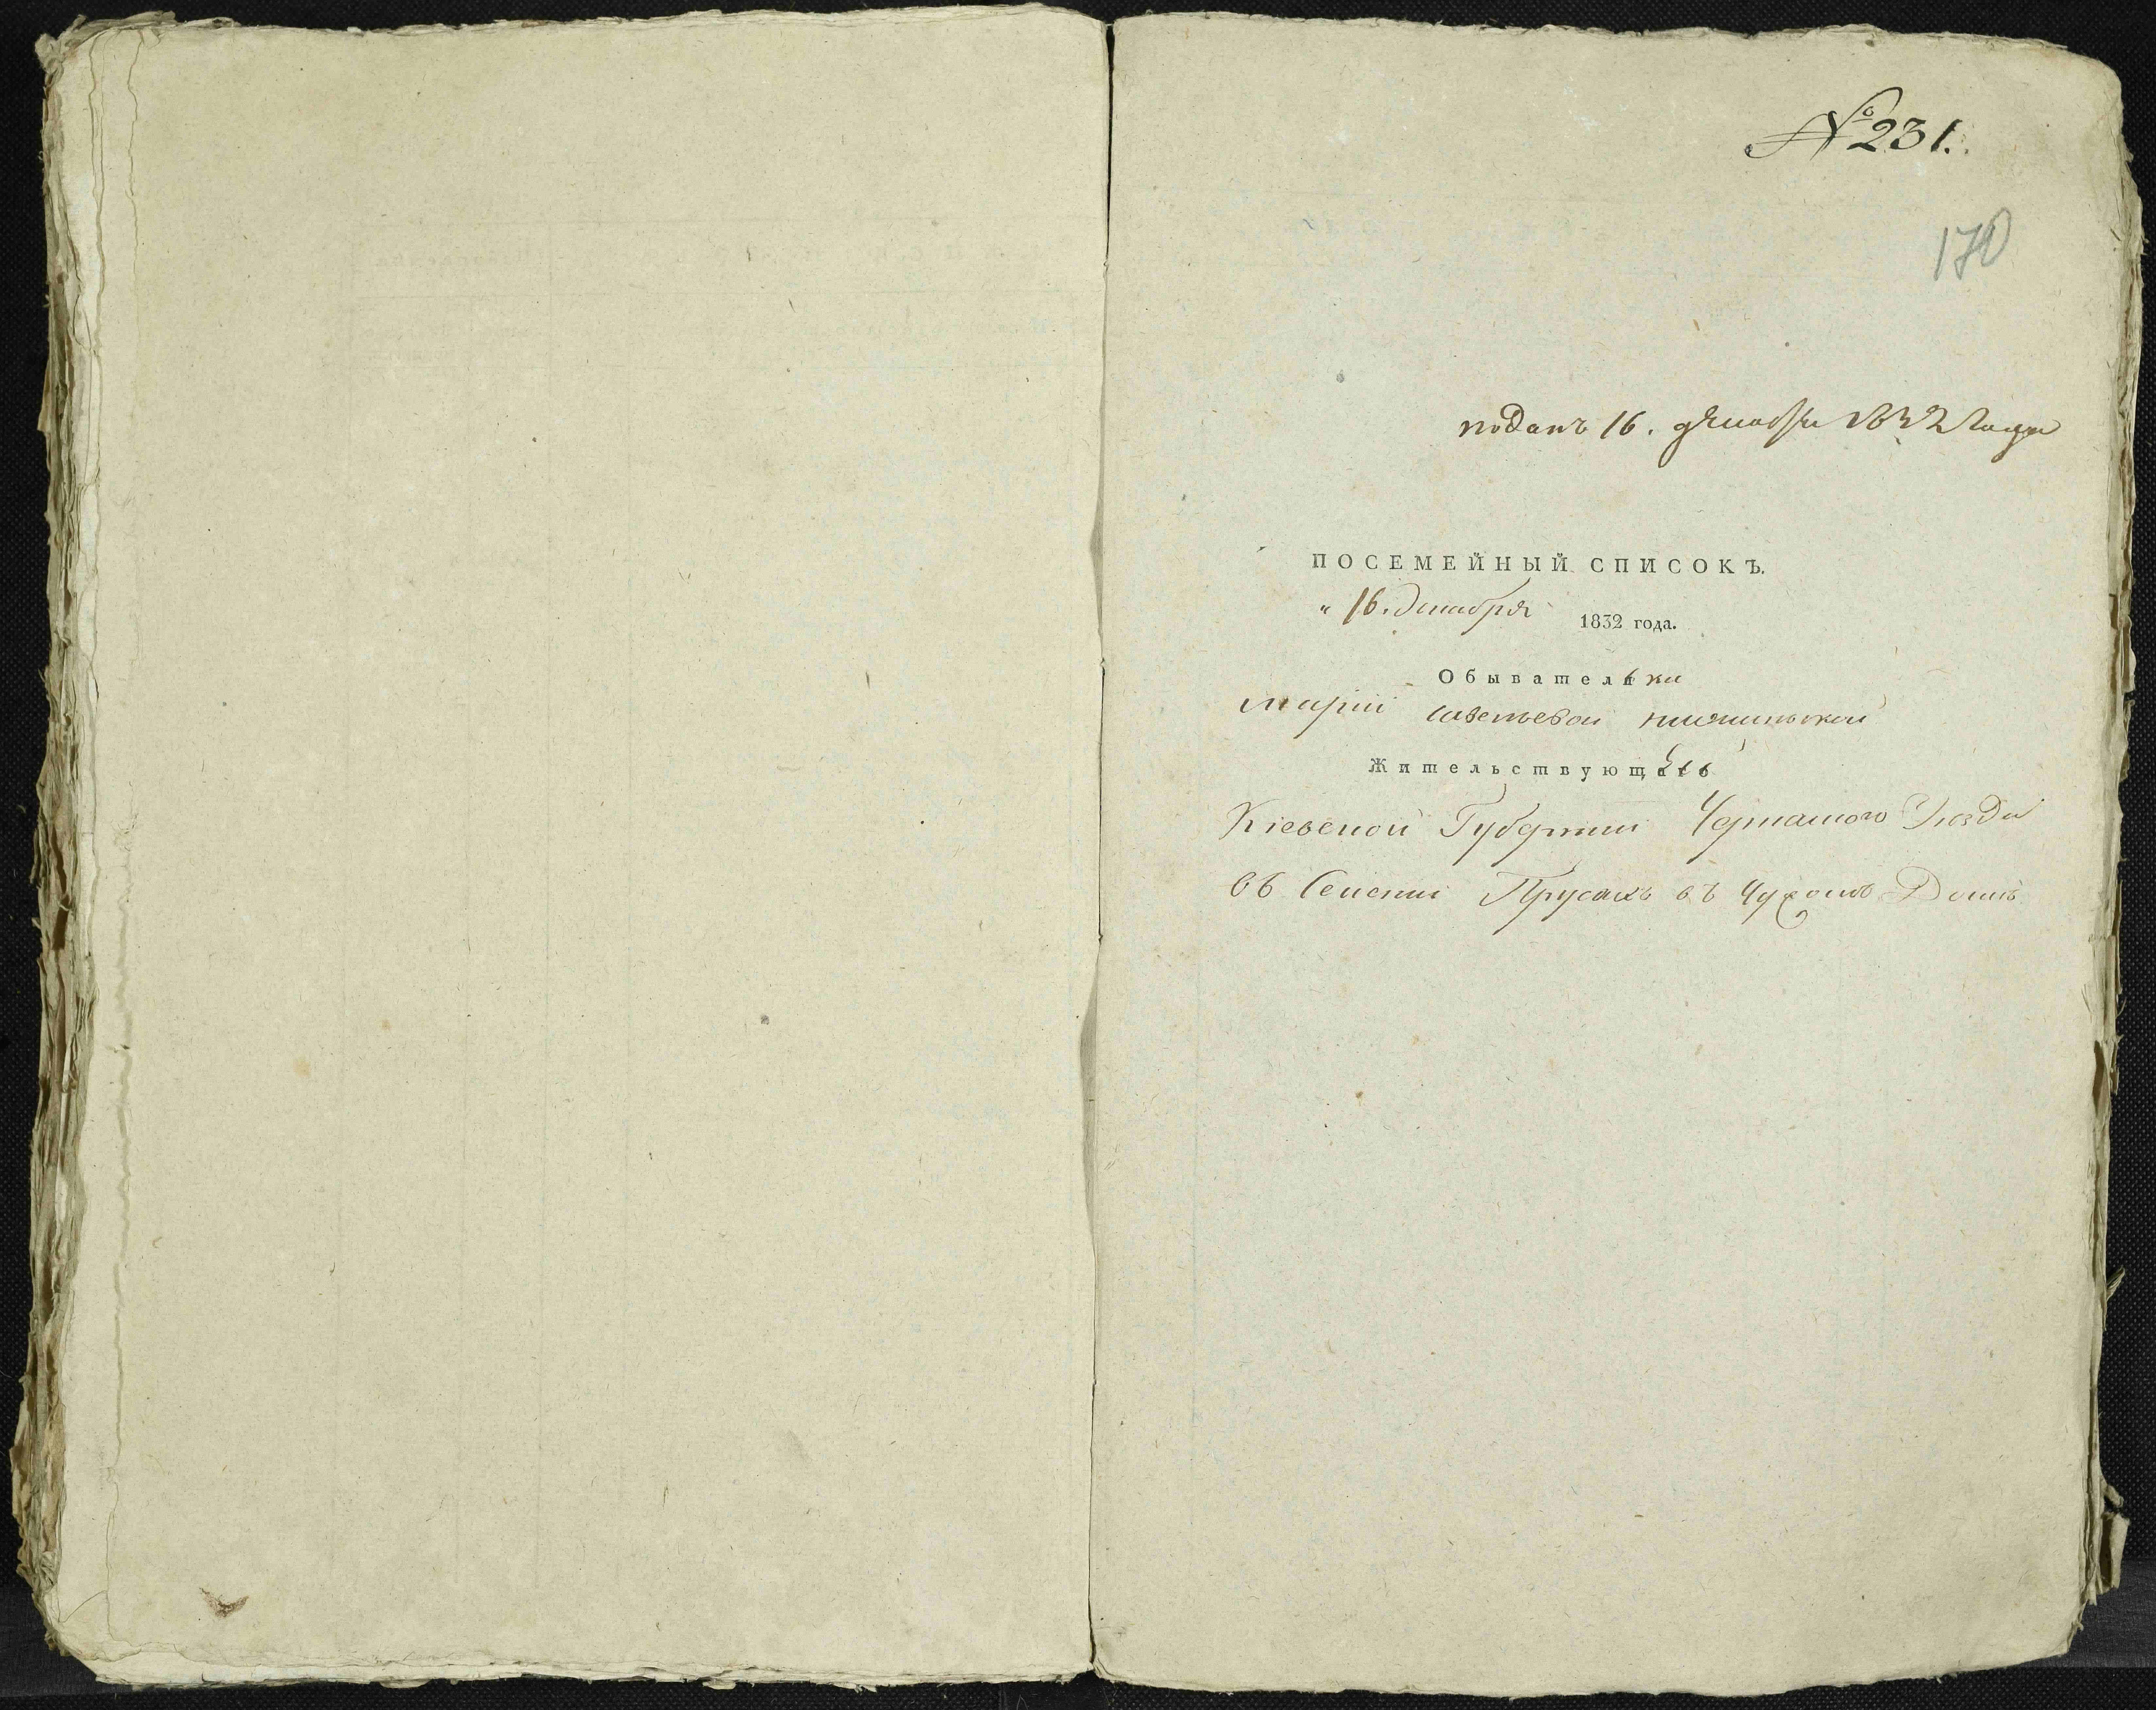 № 231.
170
поданъ 16. декабря 1832 года
ПОСЕМЕЙНЫЙ СПИСОКЪ.
„ 16. декабря 1832 года.
Обывательки
Марiи Савельевой
Жительствующей
Кiевской Губернiи Черкаского Уезда
въ Селенiи Прусахъ въ Чужомъ Доме